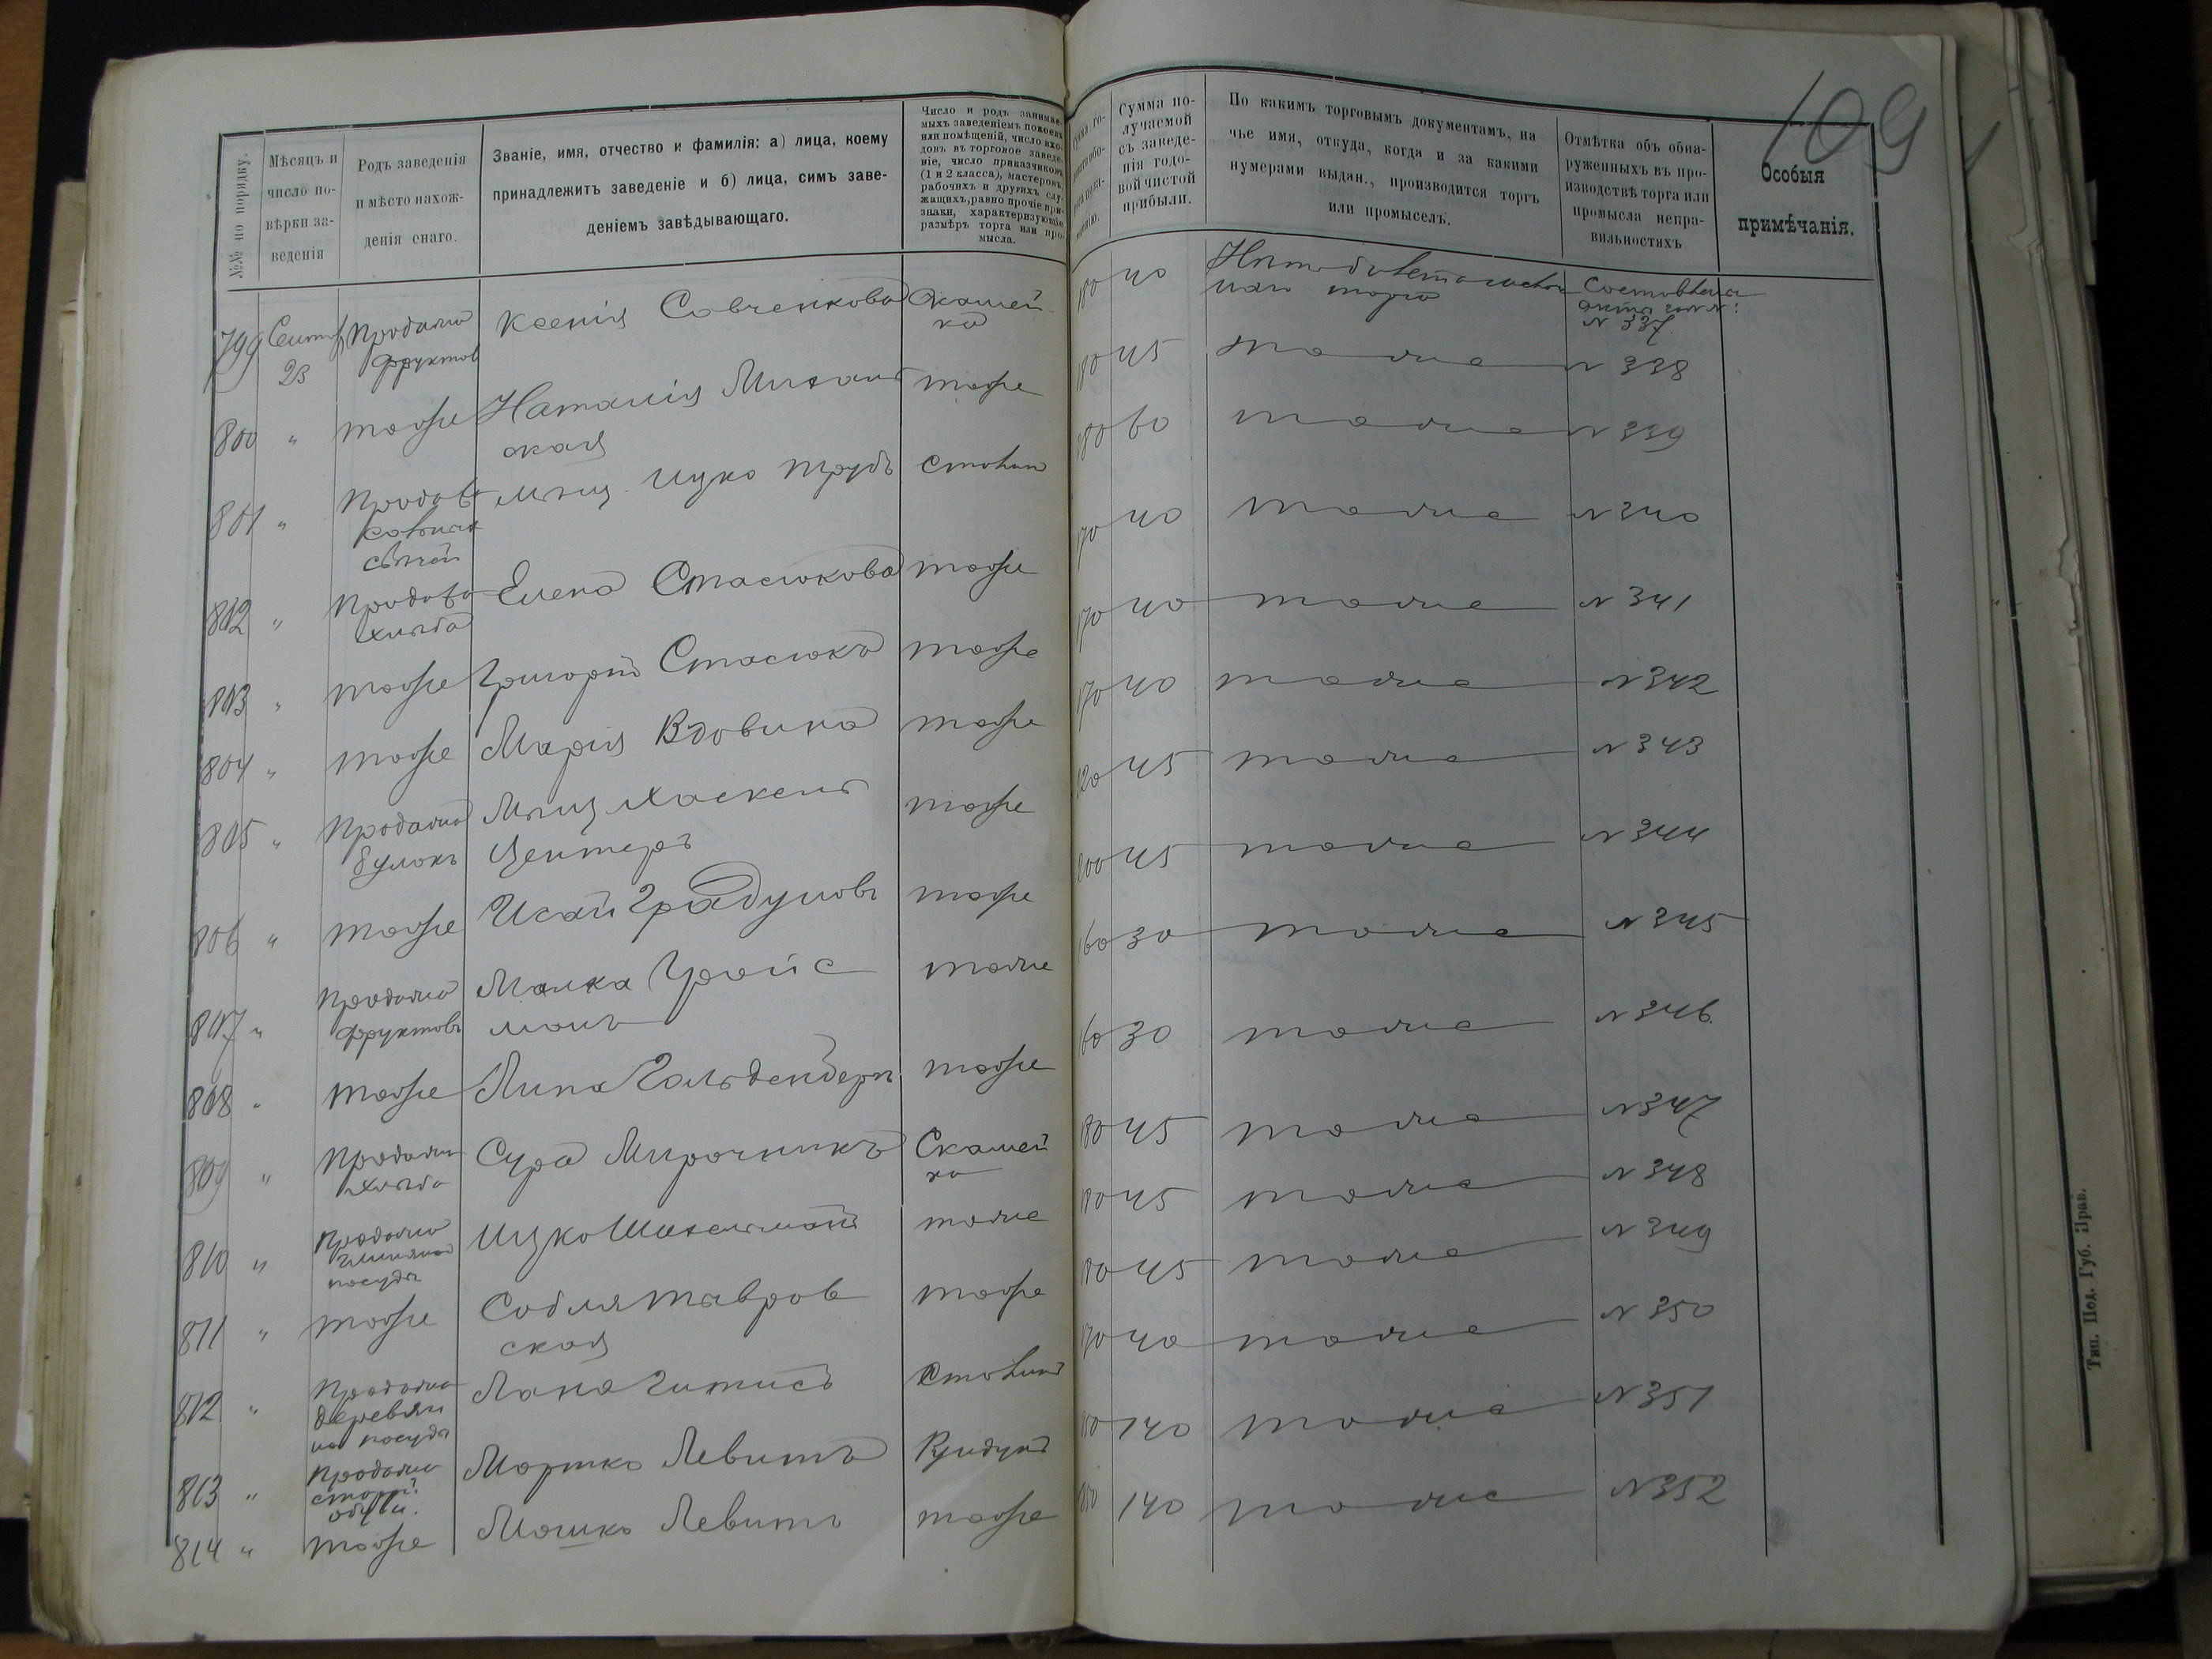 109
№№ по порядку.
Мѣсяцъ и
число по-
вѣрки за-
веденія
Родъ заведенія
и мѣсто нахож-
денія онаго.
Званіе, имя, отчество и фамилія: а) лица, коему
принадлежитъ заведеніе и б) лица, симъ заве-
деніемъ завѣдывающаго.
Число и родъ занимае-
мыхъ заведеніемъ покоевъ
или помѣщеній, число вхо-
довъ въ торговое заведе-
ніе, число приказчиковъ
(1 и 2 класса), мастеровъ,
рабочихъ и другихъ слу-
жащихъ, равно прочіе при-
знаки, характеризующіе
размѣръ торга или про-
мысла.
Сумма по-
лучаемой
съ заведе-
нія годо-
вой чистой
прибыли.
По какимъ торговымъ документамъ, на
чье имя, откуда, когда и за какими
нумерами выдан., производится торгъ
или промыселъ.
Отмѣтка объ обна-
руженныхъ въ про-
изводствѣ торга или
промысла непра-
вильностяхъ
Особыя
примѣчанія.
799 Сентяб 23 Продажа фруктов Ксенія Савченкова Скамей-ка 180 40 торга № 337
800 " тоже Наталія тоже 180 45 тоже № 338
801 " свѣчей Мѣщ. Ицко столик 180 60 тоже № 339
802 " Продажа хлѣба Елена Стасюкова тоже 170 40 тоже № 340
803 " тоже Григорій Стасюкъ тоже 170 40 тоже № 341
804 " тоже Марія Вдовина тоже 170 40 тоже № 342
805 " Продажа булокъ Мѣщ Хаскель Центеръ тоже 120 45 тоже № 343
806 " тоже Исай Градуновъ тоже 200 45 тоже № 344
807 " Продажа фруктовъ Малка Гройсманъ тоже 160 30 тоже № 345
808 " тоже Лина Гольденберг тоже 160 30 тоже № 346
809 " Продажа хлѣба Сура Мирочникъ Скамейка 180 45 тоже № 347
810 " Продажа глиняной посуды Ицко тоже 180 45 тоже № 348
811 " тоже Собля Тавровская тоже 180 45 тоже № 349
812 " Продажа деревян посуды Гитисъ столик 170 40 тоже № 350
813 " Продажа старой обуви. Мортко Левитъ 140 тоже № 351
814 " тоже Мошко Левитъ тоже 140 тоже № 352
Тип. Под. Губ. Прав.